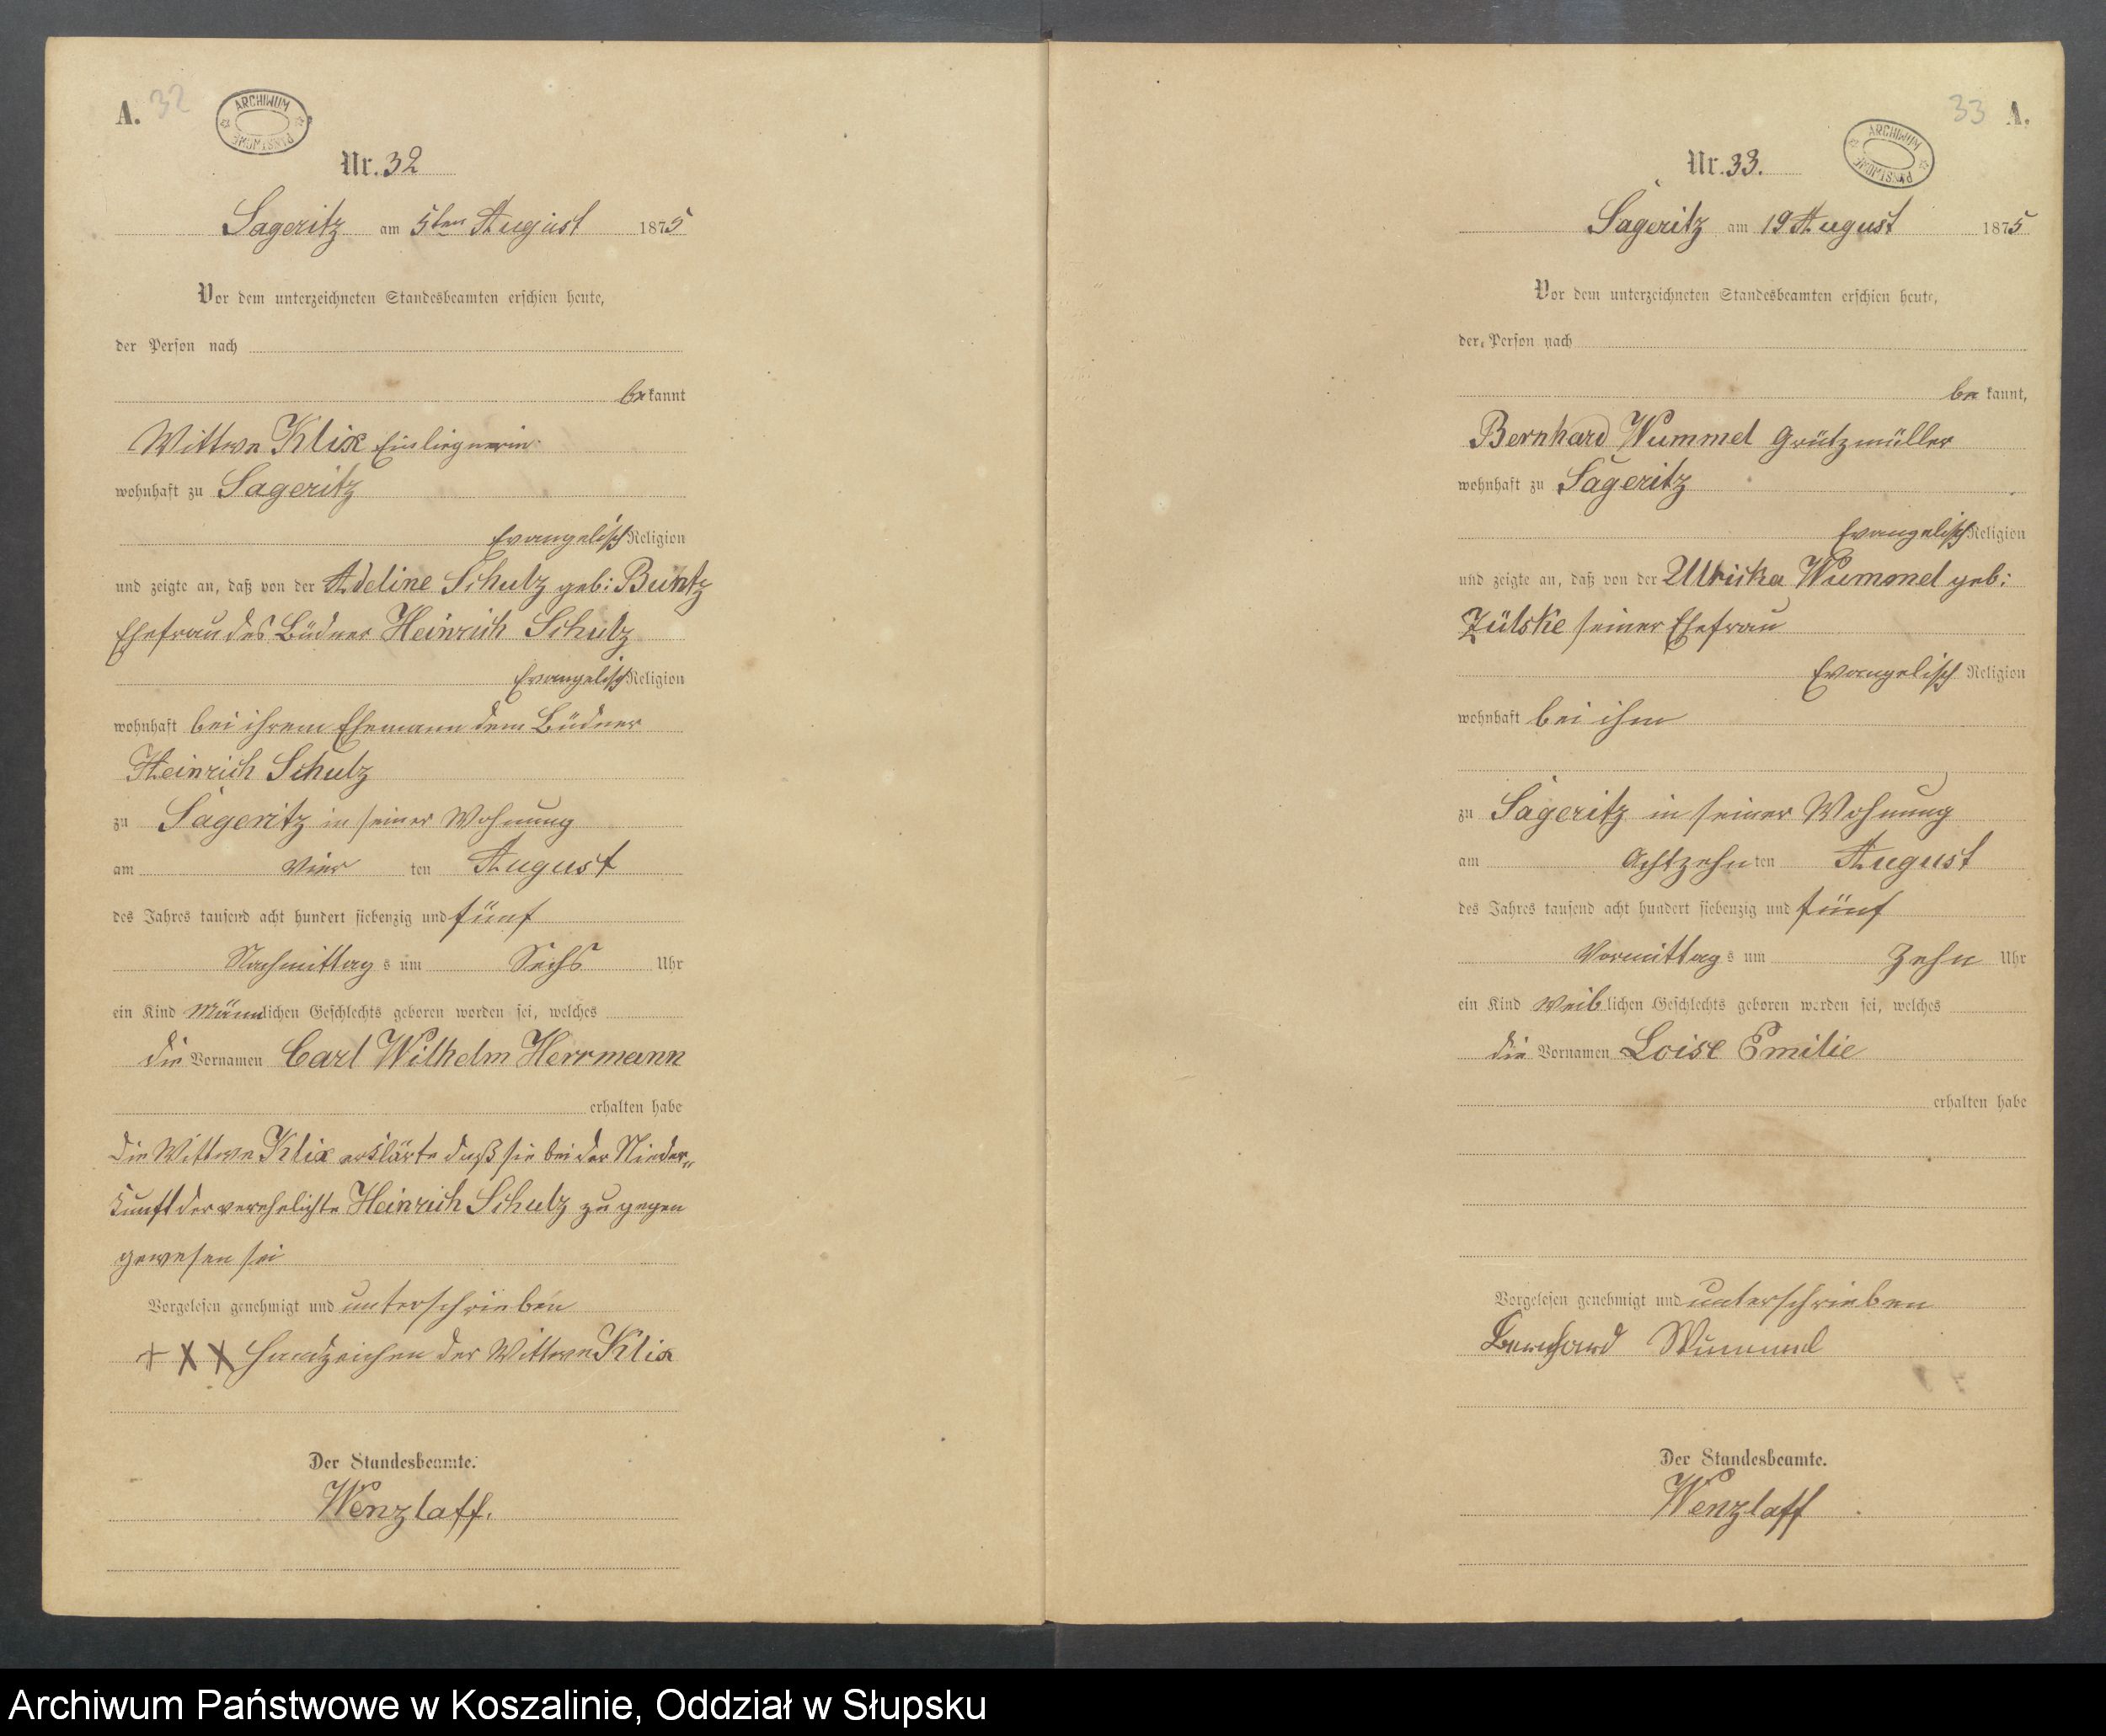 A. 32
ARCHIWUM PAŃSTWOWE
Nr. 32
Sageritz am 5ten August 1875
Vor dem unterzeichneten Standesbeamten erschien heute,
der Person nach
be kannt
Wittwe Klix Einliegnerin
wohnhaft zu Sageritz
Evangelisch Religion
und zeigte an, daß von der Adeline Schulz geb: Buntz
Ehefrau des Büdner Heinrich Schulz
Evangelisch Religion
wohnhaft bei ihrem Ehemann dem Büdner
Heinrich Schulz
zu Sageritz in seiner Wohnung
am vier ten August
des Jahres tausend acht hundert siebenzig und fünf
Nachmittag s um Sechs Uhr
ein Kind Männlichen Geschlechts geboren worden sei, welches
die Vornamen Carl Wilhelm Herrmann
erhalten habe
die Wittwe Klix erklärte daß sie bei der Nieder„
kunft der verehelichte Heinrich Schulz zu gegen
gewesen sei
Vorgelesen genehmigt und unterschrieben
+ X X Handzeichen der Wittwe Klix
Der Standesbeamte.
Wenzlaff.
33 A.
ARCHIWUM PAŃSTWOWE
Nr. 33.
Sageritz am 19 August 1875
Vor dem unterzeichneten Standesbeamten erschien heute,
der Person nach
be kannt,
Bernhard Wummel Grützmüller
wohnhaft zu Sageritz
Evangelisch Religion
und zeigte an, daß von der Ulricka Wummel geb:
Zülske seiner Ehefrau
Evangelisch Religion
wohnhaft bei ihm
zu Sageritz in seiner Wohnung
am Achtzehn ten August
des Jahres tausend acht hundert siebenzig und fünf
Vormittag s um Zehn Uhr
ein Kind Weiblichen Geschlechts geboren worden sei, welches
die Vornamen Loise Emilie
erhalten habe
Vorgelesen genehmigt und unterschrieben
Bernhard Wummel
Der Standesbeamte.
Wenzlaff
Archiwum Państwowe w Koszalinie, Oddział w Słupsku